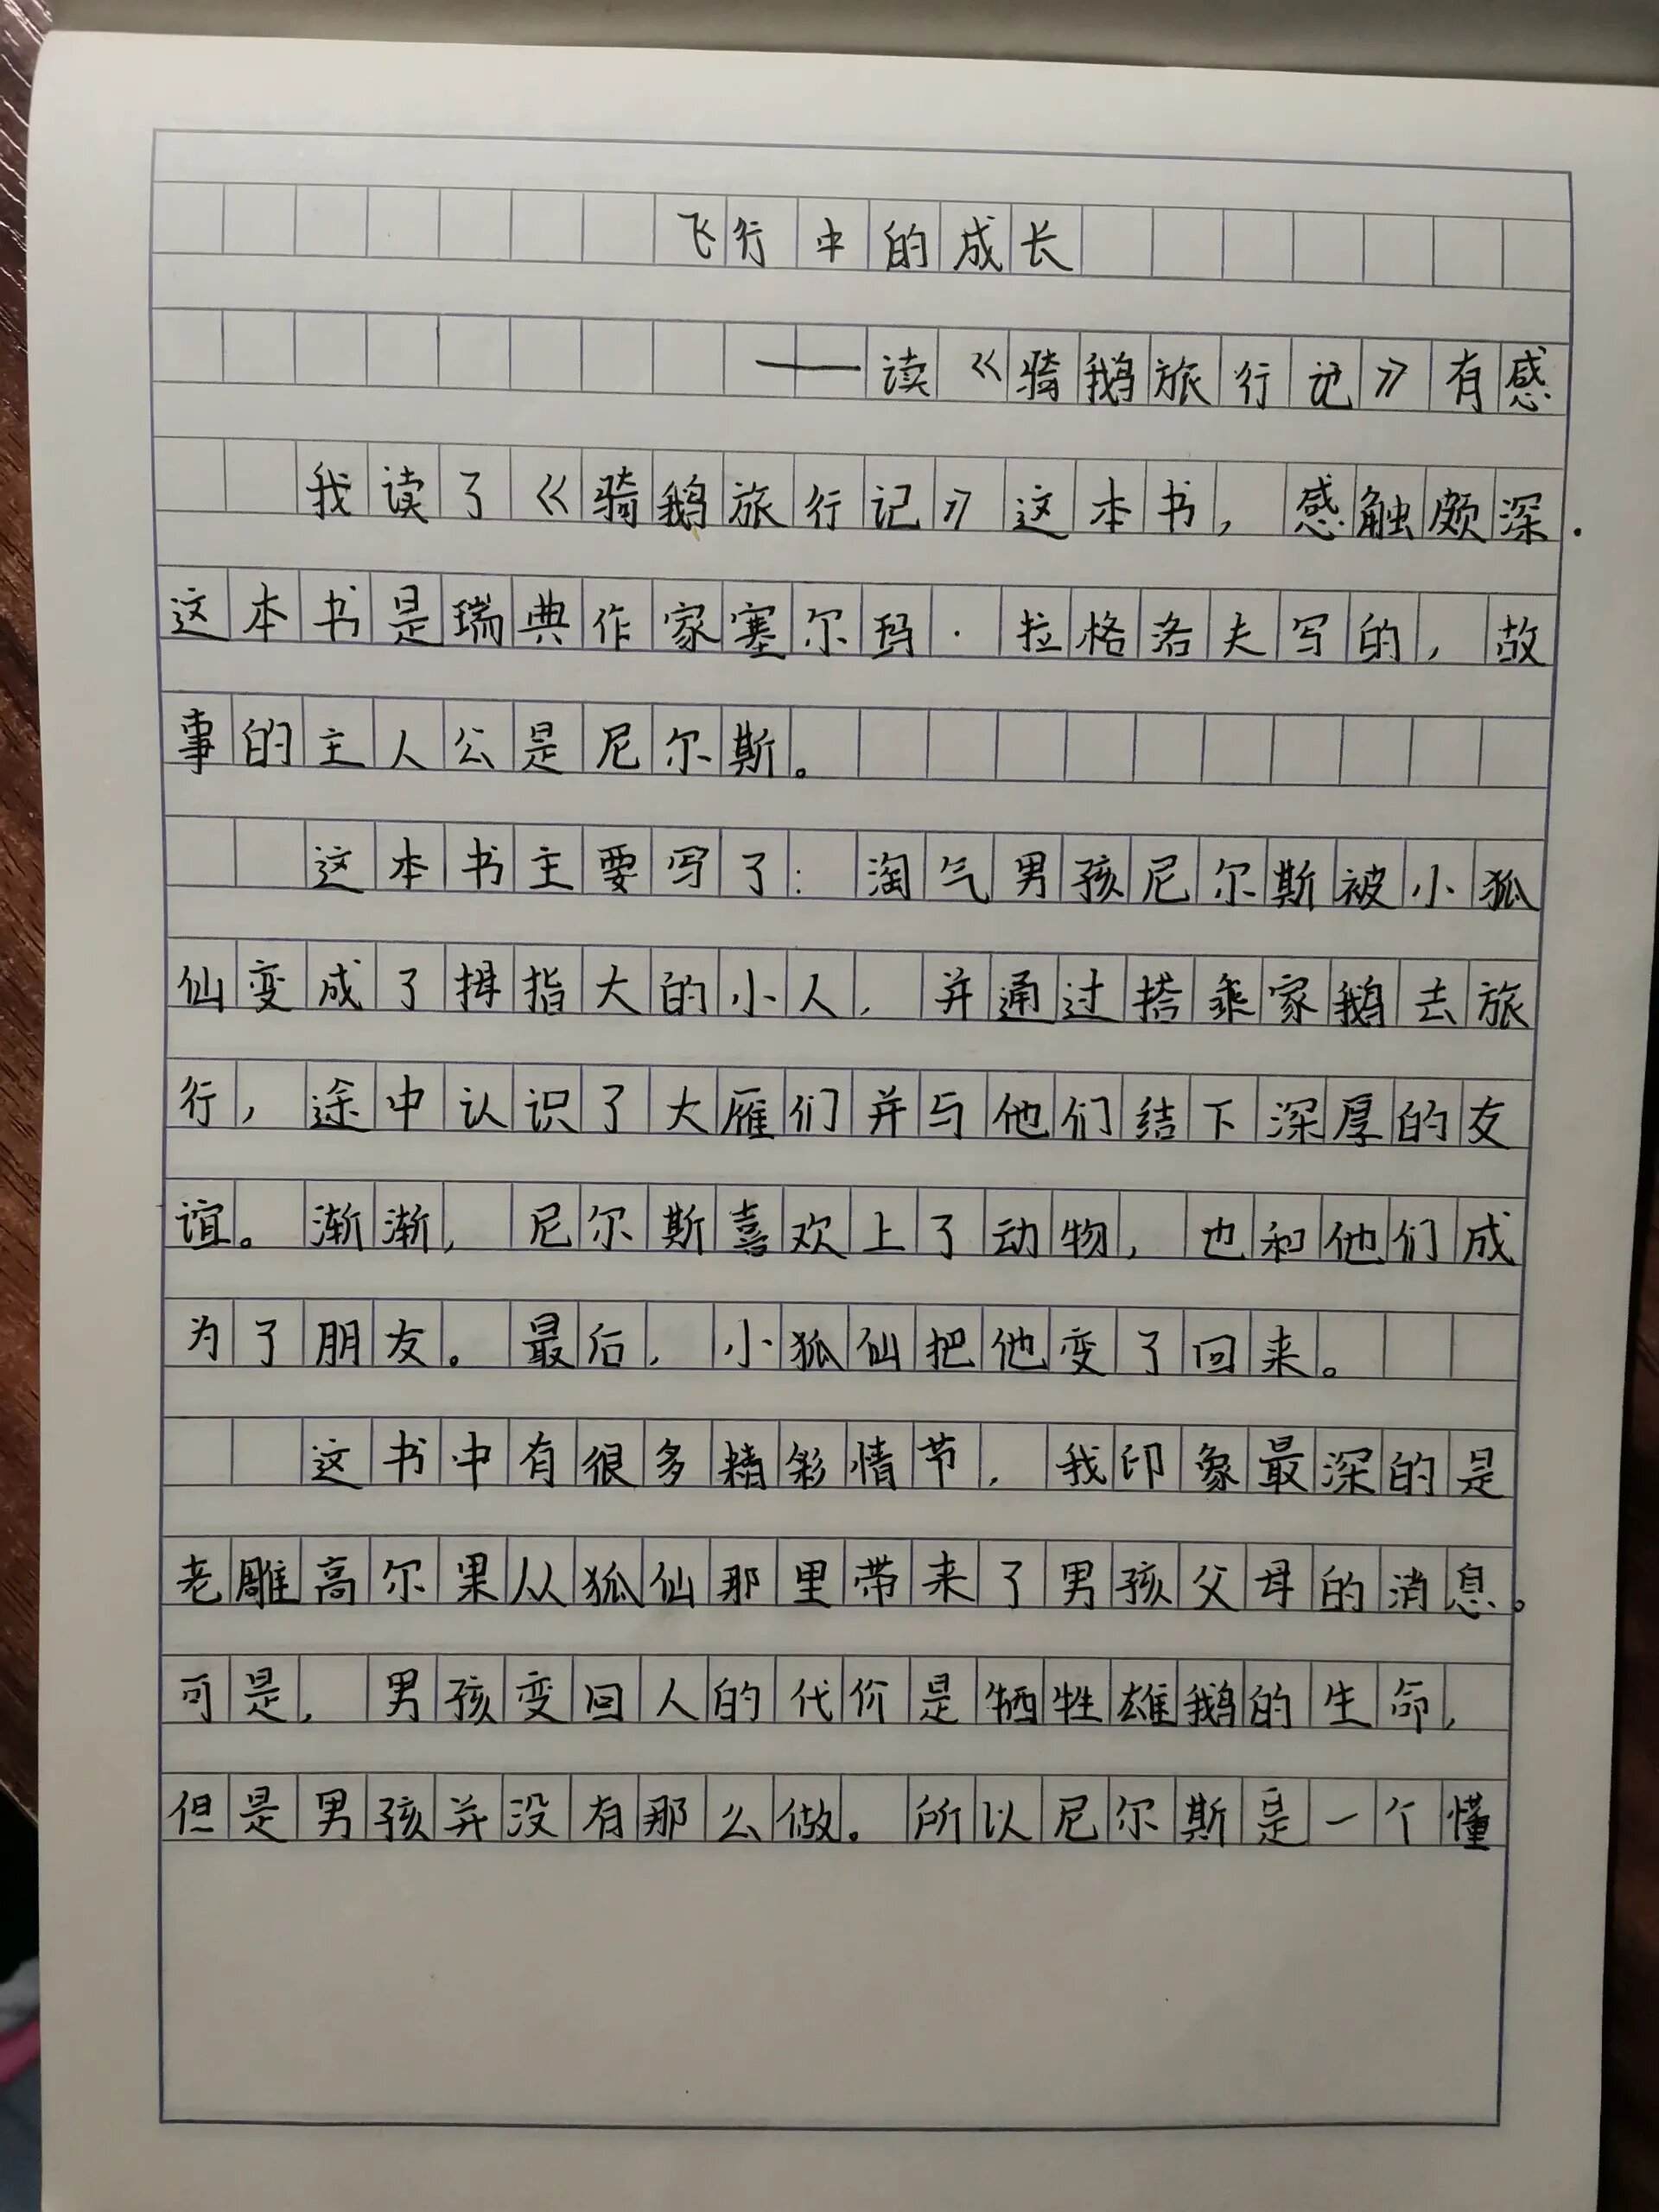 飞行中的成长
——读《骑鹅旅行记》有感
我读了《骑鹅旅行记》这本书，感触颇深.
这本书是瑞典作家塞尔玛·拉格洛夫写的，故
事的主人公是尼尔斯。
这本书主要写了：淘气男孩尼尔斯被小狐
仙变成了拇指大的小人，并通过搭乘家鹅去旅
行，途中认识了大雁们并与他们结下深厚的友
谊。渐渐，尼尔斯喜欢上了动物，也和他们成
为了朋友。最后，小狐仙把他变了回来。
这书中有很多精彩情节，我印象最深的是
老雕高尔果从狐仙那里带来了男孩父母的消息。
可是，男孩变回人的代价是牺牲雄鹅的生命，
但是男孩并没有那么做。所以尼尔斯是一个懂